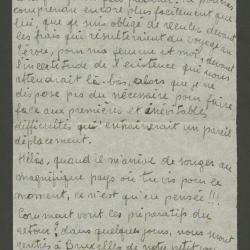 comprendras encore plus facilement que
lui, que je suis obligé de reculer devant
les frais qui résulteraient du voyage au
Pérou, pour ma femme et moi, devant
l'incertitude de l'existence qui nous
attendrait là-bas, alors que je ne
dispose pas du nécessaire pour faire
face aux premières et inévitables
difficultés qu'entrainerait un pareil
déplacement.
Hélas, quand il m'arrive de songer au
magnifique pays où tu vis pour le
moment, ce n'est qu'en pensée!!!
Comment vont les préparatifs du
retour; dans quelques jours, nous serons
rentrés à Bruxelles de notre petit